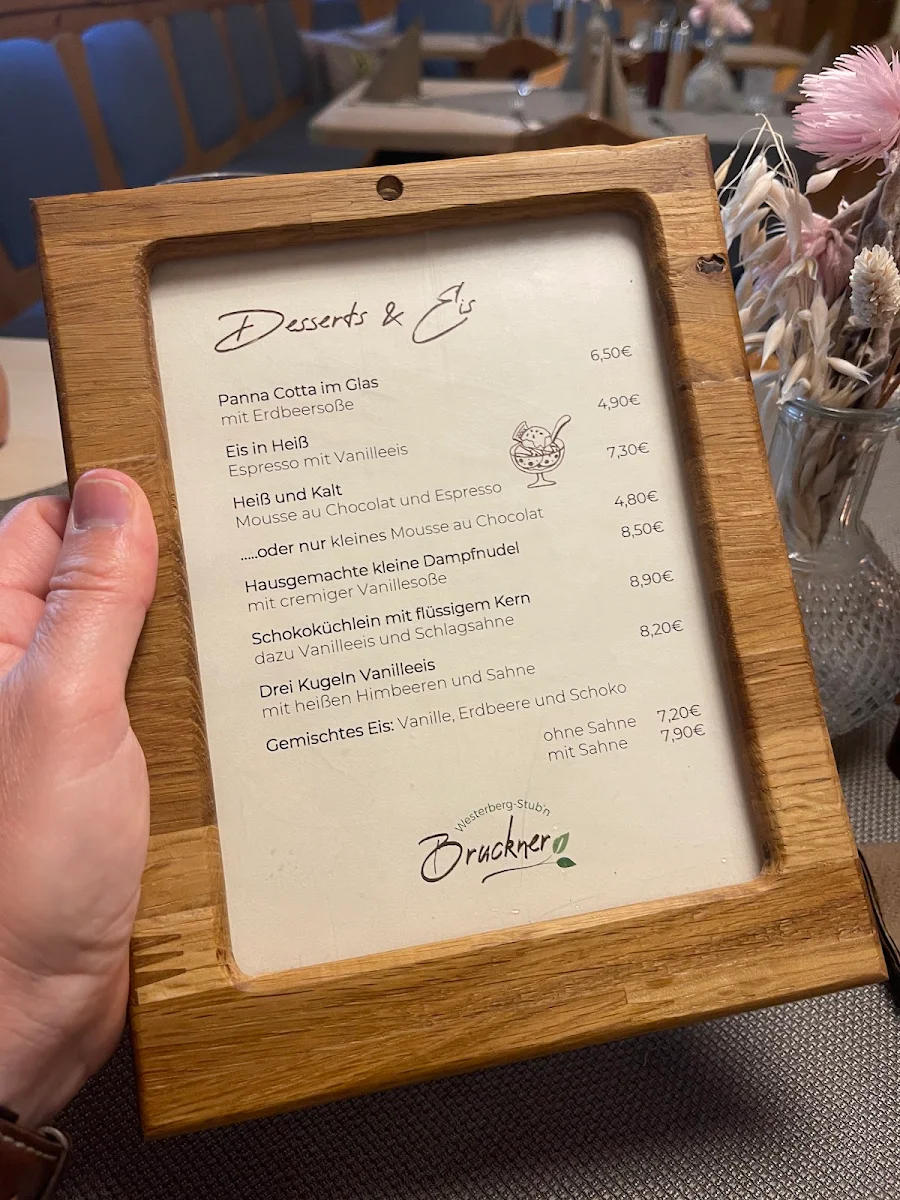 Desserts & Eis
Panna Cotta im Glas 6,50€
mit Erdbeersoße
Eis in Heiß 4,90€
Espresso mit Vanilleeis
Heiß und Kalt 7,30€
Mousse au Chocolat und Espresso
.....oder nur kleines Mousse au Chocolat 4,80€
Hausgemachte kleine Dampfnudel 8,50€
mit cremiger Vanillesoße
Schokoküchlein mit flüssigem Kern 8,90€
dazu Vanilleeis und Schlagsahne
Drei Kugeln Vanilleeis 8,20€
mit heißen Himbeeren und Sahne
Gemischtes Eis: Vanille, Erdbeere und Schoko
ohne Sahne 7,20€
mit Sahne 7,90€
Westerberg-Stub'n
Bruckner